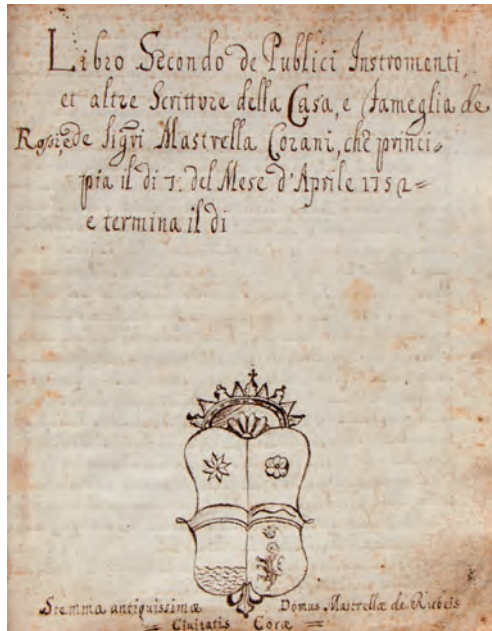 Libro Secondo de Publici Instromenti,
et altre Scritture della Casa, e Fameglia de
Rossi, e de Sig.ri Mastrella Corani, che princi-
pia il di 7. del Mese d'Aprile 1752=
e termina il di
Stemma antiquissimæ Domus Mastrellæ de Rubeis
= Civitatis Coræ =